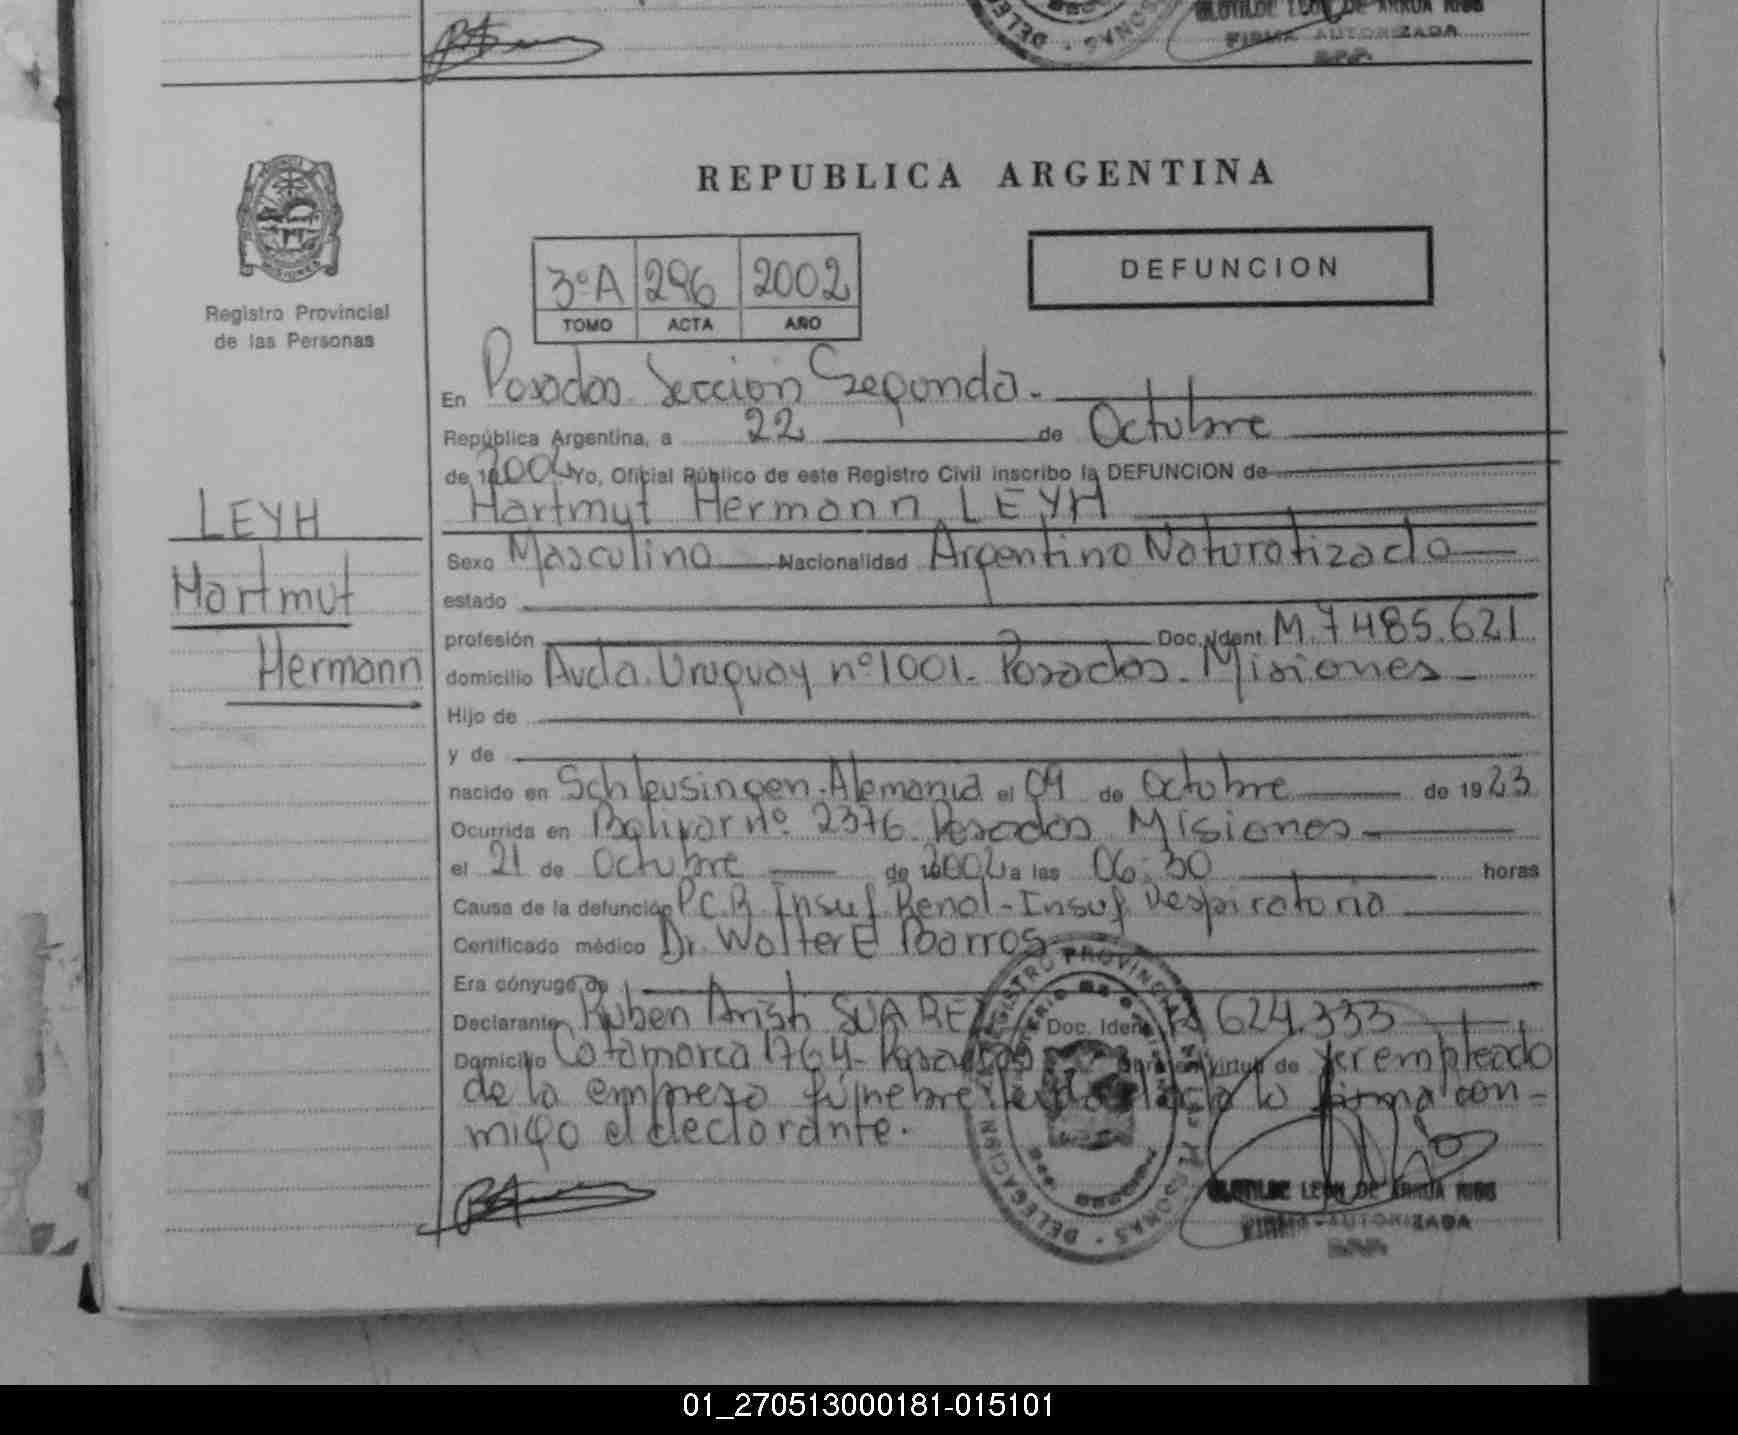 CLOTILDE LEON DE ARRUA RIOS
FIRMA AUTORIZADA
REPUBLICA ARGENTINA
Registro Provincial
de las Personas
3ºA 296 2002
TOMO ACTA AÑO
DEFUNCION
En Posadas. Seccion Segunda.
República Argentina, a 22 de Octubre
de 2002 Yo, Oficial Público de este Registro Civil inscribo la DEFUNCION de
Hartmut Hermann LEYH
LEYH
Hartmut
Hermann
Sexo Masculino Nacionalidad Argentino Naturalizado
estado
profesión Doc. Ident. M. 7485.621
domicilio Avda. Uruguay nº1001. Posadas. Misiones
Hijo de
y de
nacido en Schleusingen. Alemania el 09 de Octubre de 1923
Ocurrida en Bolivar nº. 2376 Posadas Misiones
el 21 de Octubre de 2002 a las 06:30 horas
Causa de la defunción P.C.R Insuf. Renal-Insuf. Respiratoria
Certificado médico Dr. Walter E Barros
Era cónyuge de
Declarante Ruben SUAREZ Doc. Ident. 624.333
Domicilio Catamarca 1764- Posadas virtud de ser empleado
de la empresa fúnebre la firma con-
migo el declarante.
REGISTRO PROVINCIAL DE LAS PERSONAS · DELEGACION
CLOTILDE LEON DE ARRUA RIOS
FIRMA AUTORIZADA
01_270513000181-015101